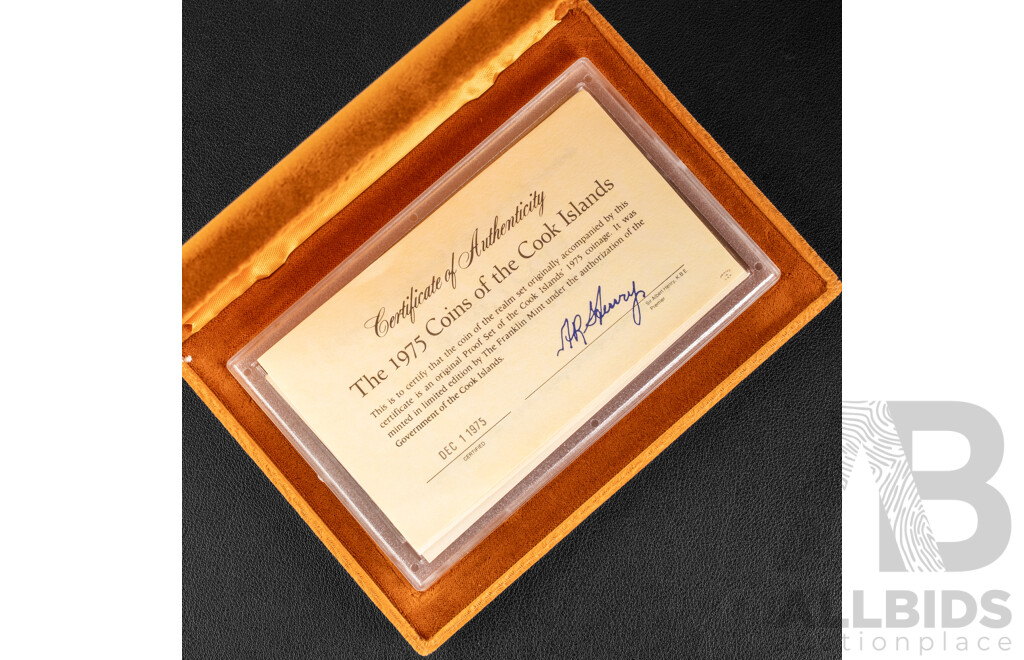 Certificate of Authenticity
The 1975 Coins of the Cook Islands
This is to certify that the coin of the realm set originally accompanied by this
certificate is an original Proof Set of the Cook Islands' 1975 coinage. It was
minted in limited edition by The Franklin Mint under the authorization of the
Government of the Cook Islands.
DEC 1 1975
CERTIFIED
Sir Albert Henry, K.B.E.
Premier
AB
ALLBIDS
auctionplace